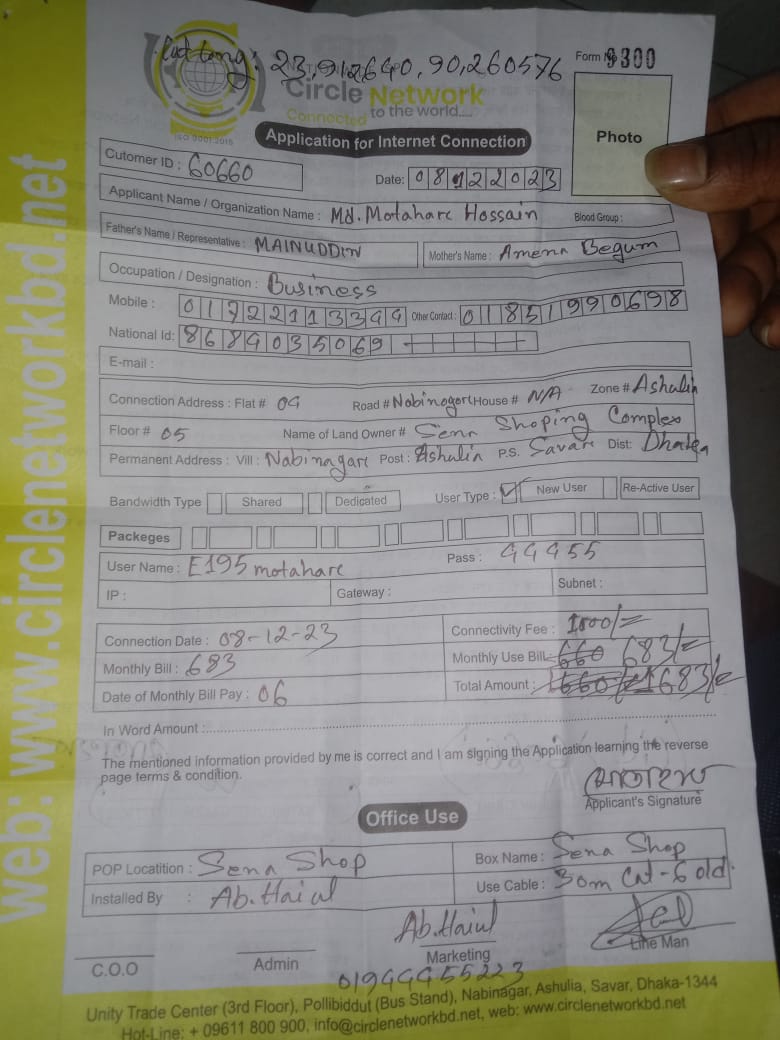 Lat Long: 23,912640, 90,260576
Form № 9300
Circle Network
Connected to the world....
ISO 9001:2015
Application for Internet Connection
Photo
Cutomer ID : 60660
Date: 08122023
Applicant Name / Organization Name : Md. Motahare Hossain
Blood Group :
Father's Name / Representative : MAINUDDIN
Mother's Name : Amena Begum
Occupation / Designation : Business
Mobile : 01722113344 Other Contact : 01851990698
National Id: 8689035069
E-mail :
Connection Address : Flat # 04 Road # Nabinogor House # N/A Zone # Ashulia
Floor # 05 Name of Land Owner # Sena Shoping Complex
Permanent Address : Vill : Nabinagare Post : Ashulia P.S. Savar Dist: Dhaka
Bandwidth Type Shared Dedicated User Type : New User Re-Active User
Packeges
User Name : E195 motahare Pass : 44455
IP : Gateway : Subnet :
Connection Date : 08-12-23 Connectivity Fee : 1000/=
Monthly Bill : 683 Monthly Use Bill 660 683/=
Date of Monthly Bill Pay : 06 Total Amount : 1660/= 1683/=
In Word Amount :
The mentioned information provided by me is correct and I am signing the Application learning the reverse
page terms & condition.
Applicant's Signature
Office Use
POP Locatition : Sena Shop Box Name : Sena Shop
Installed By : Ab. Haiul Use Cable : 30m Cat-6 old.
Ab. Haiul
C.O.O Admin Marketing Line Man
01944455223
Unity Trade Center (3rd Floor), Pollibiddut (Bus Stand), Nabinagar, Ashulia, Savar, Dhaka-1344
Hot-Line: + 09611 800 900, info@circlenetworkbd.net, web: www.circlenetworkbd.net
web: www.circlenetworkbd.net